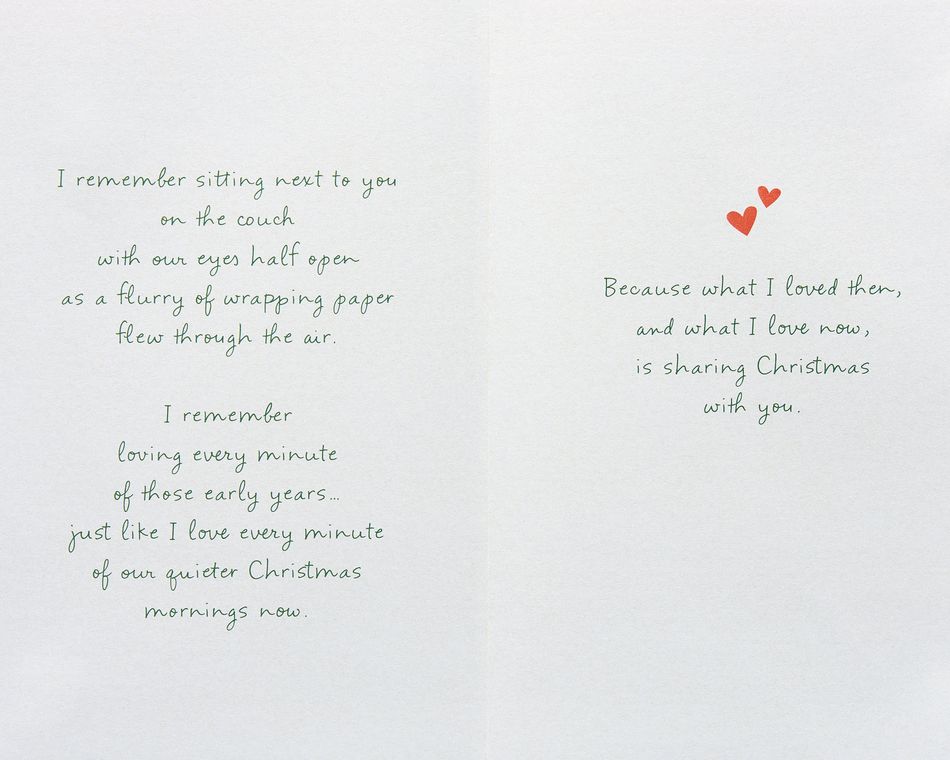 I remember sitting next to you
on the couch
with our eyes half open
as a flurry of wrapping paper
flew through the air.
I remember
loving every minute
of those early years...
just like I love every minute
of our quieter Christmas
mornings now.
Because what I loved then,
and what I love now,
is sharing Christmas
with you.